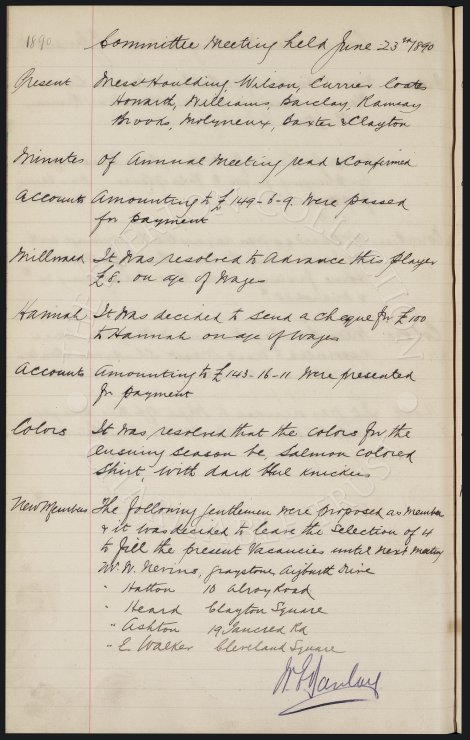 1890
Committee Meeting held June 23rd/1890
Present Messrs Houlding, Wilson, Currier Coates
Howarth, Williams, Barclay, Ramsay
Brooks, Molyneux, Baxter & Clayton
Minutes of Annual Meeting read & confirmed
Accounts Amounting to £149-6-9 were passed
for payment
Millward It was resolved to advance this player
£6. on a/c of wages
Hannah It was decided to send a cheque for £100
to Hannah on a/c of wages
Accounts Amounting to £143-16-11 were presented
for payment
Colors It was resolved that the colors for the
ensuing season be, salmon colored
shirt, with dark blue knickers
New Members The following gentlemen were proposed as member
& it was decided to leave the selection of 4
to fill the present vacancies until next meeting
W. Nevins, Graystone, Aigburth Drive
" Hatton 10 Alroy Road
" Heard Clayton Square
" Ashton 19 Tancred Rd
" E. Walker Cleveland Square